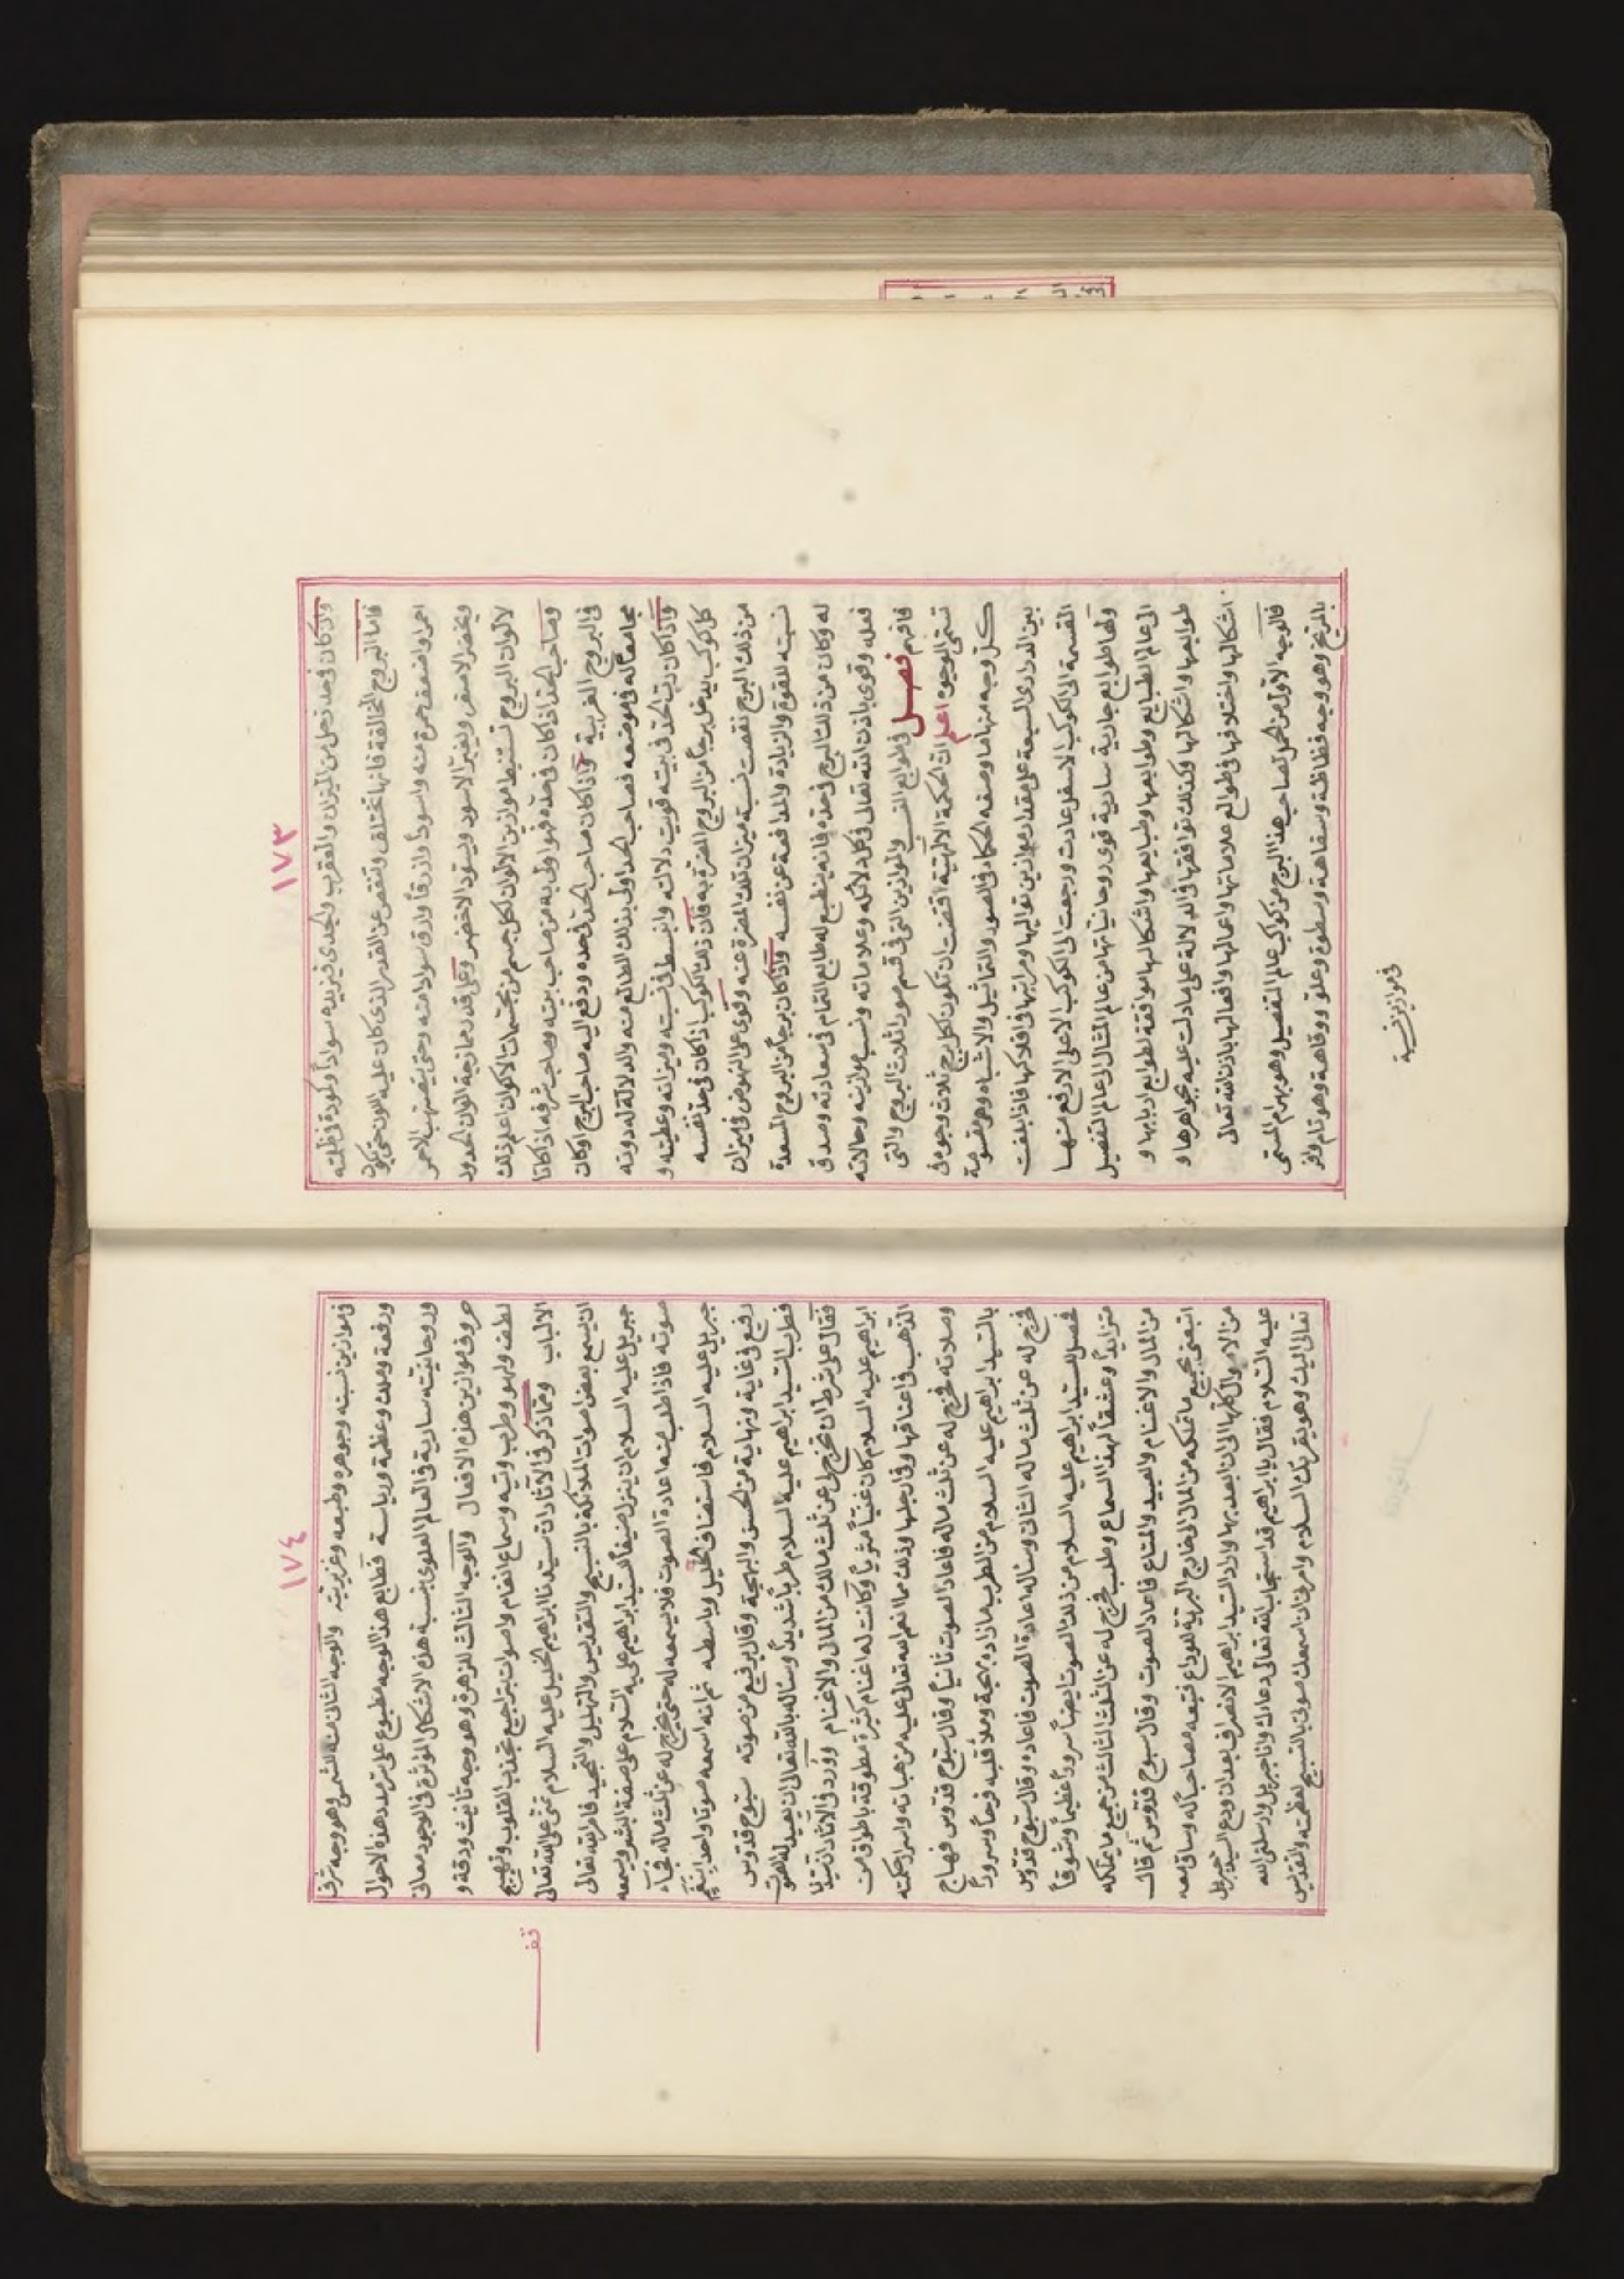 ١٧٣
واذا كان في حد زحل من الميزان والعقرب والجدي فيزيده سواداً وكمودة في ظلمته
فاما البروج المخالفة فانها تختلف وتنقص عن القدر الذي كان عليه اللون حتى يكون
احمر او اضعف حمرة منه واسود او ازرقاً وارق سوادا منه وحتى يصهب الاحمر
ويخضر الاصفر ويغبر الاسود ويسود الاخضر وعلى قدر ممازجة الوان الحدود
لالوان البروج تستنبط موازين الالوان لكل جسم من مجسمات الاكوان اعلم ذلك
وصاحب الحد اذا كان في حده فهو اولى به من صاحب بيته وصاحب شرفه اذا كانا
في البروج الغريبة واذا كان صاحب الحد في حده ودفع اليه صاحب البرج او كان
مجامعاً له في موضعه فصاحب الحد اولى بذلك الطالع منه والدلالة له دونه
واذا كان رب الحد في بيته قويت دلالته وانبسط في نسبته وميزانه وعطيته و
كل كوكب يدخل برجاً من البروج المضرة به فان ذلك الكوكب اذا كان في حد نفسه
من ذلك البرج نقصت نسبة ميزان تلك المضرة عنه وقوي على النهوض في ميزان
نسبته للقوة والزيادة والمدافعة عن نفسه واذا كان برجاً من البروج المسعدة
له وكان من ذلك البرج في حده فانه ينطبع له طابع التمام في سعادته وصدق
فعله وقوي باذن الله تعالى في كل دلائله وعلاماته ونسب موازينه وحالاته
فافهم فصل في طوابع النسب والموازين التي في قسم صور اثلاث البروج والتي
تسمى الوجوه اعلم ان الحكمة الالهية اقتضت ان تكون لكل برج ثلاث وجوه في
كل وجه منها ما وصفه الحكماء في الصور والتماثيل والاشباه وهو مقسومة
بين الدراري السبعة على مقدار موازين تواليها ومراتبها في افلاكها فاذا بلغت
القسمة الى الكوكب الاسفل عادت ورجعت الى الكوكب الاعلى الارفع منها
ولها طوابع جارية سارية قوى روحانياتها من عالم المثال الى عالم التفصيل
الى عالم الطبايع وطوابعها وطبايعها واشكالها موافقة لطوابع اربابها و
طوابعها واشكالها وكذلك توافقها في الدلالة على ما دلت عليه بجواهرها و
اشكالها واختلافها في طوالع علاماتها واعمالها وافعالها باذن الله تعالى
فالوجه الاول من الحمل لصاحب هذا البرج من كوكب عالم التفصيل وهو بهرام المسمى
بالمريخ وهو وجه فظاظة وسفاهة وسطوة وعلو ووقاهة وهو تام وافر
في موازين نسبة
١٧٤
في موازين نسبته وجوهره وطبعه وغريزيته والوجه الثاني منه للشمس وهو وجه شرف
ورفعة وملك وعظمة ورياسة فطابع هذا الوجه مطبوع على ترمد هذه الاحوال
وروحانيته سارية في العالم العلوي بنسبة هذه الاشكال المؤثرة في الوجود معاني
حروف موازين هذه الافعال والوجه الثالث للزهرة وهو وجه تأنيث ودقة و
لطف ولهو وطرب وتيه وسماع انغام واصوات بترجيع تجذب القلوب وتهيج
الالباب ومما ذكر في الآثار ان سيدنا ابراهيم الخليل عليه السلام تمنى على الله تعالى
ان يسمع بعض اصوات الملائكة بالتسبيح والتقديس والتهليل والتمجيد فامر الله تعالى
جبريل عليه السلام ان ينزل ضيفاً للسيد ابراهيم عليه السلام على صفة البشر ويسمعه
صوته فاذا طلب منه اعادة الصوت فلا يسمعه له حتى يخرج له عن ثلث ماله فجاء
جبريل عليه السلام فاستضاف الخليل وباسطه ثم انه اسمعه صوتا واحد ابنغم
رفيع في غاية ونهاية من الحسن والبهجة وقال برفيع من صوته سبوح قدوس
فطرب السيد ابراهيم عليه السلام طرباً شديداً وسأله بالله تعالى ان يعيد له الصوت
فقال على شرط ان تخرج لي عن ثلث مالك من المال والاغنام وورد في الآثار ان سيدنا
ابراهيم عليه السلام كان غنياً مثرياً وكانت له اغنام كثيرة مطوقة باطواق من
الذهب في اعناقها وفي ارجلها وذلك مما انعم الله تعالى عليه من هباته واسرار حكمته
وصلاته فخرج له عن ثلث ماله فاعاد الصوت ثانياً وقال سبوح قدوس فهاج
بالسيد ابراهيم عليه السلام من الطرب ما زاده بهجة وملأ قلبه فرحاً وسروراً
فخرج له عن ثلث ماله الثاني وسأله اعادة الصوت فاعاده وقال سبوح قدوس
فحصل للسيد ابراهيم عليه السلام من ذلك الصوت ايضاً سروراً عظيماً وشوقاً
متزايداً وعشقاً لهذا السماع وطلب فخرج له عن الثلث الثالث من جميع ما يملكه
من المال والاغنام والعبيد والمتاع فاعاد الصوت وقال سبوح قدوس ثم قال
اتبعني بجميع ما تملكه من المال الى خارج البرية للوداع فتبعه مصاحباً له وساق معه
من الاموال كلها الى ان ابعد بها واراد السيد ابراهيم الانصراف بعد ان ودع السيد جبريل
عليه السلام فقال يا ابراهيم قد استجاب الله تعالى دعاءك وانا جبريل وارسلني الله
تعالى اليك وهو يقرئك السلام وامرني ان اسمعك صوتي بالتسبيح لعظمته والتقديس
قف